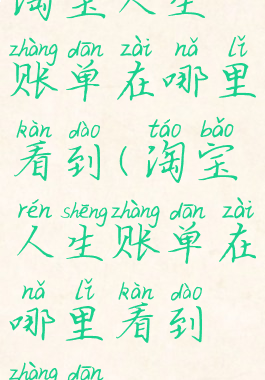 淘宝人生
zhàng dān zài nǎ lǐ
账单在哪里
kàn dào táo bǎo
看到(淘宝
rén shēng zhàng dān zài
人生账单在
nǎ lǐ kàn dào
哪里看到
zhàng dān